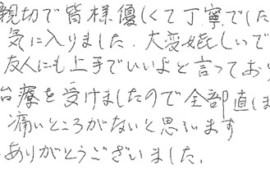 親切で皆様優しくて丁寧でした
気に入りました．大変嬉しいで
友人にも上手でいいよと言ってお
治療を受けましたので全部直しま
痛いところがないと思います
ありがとうございました．